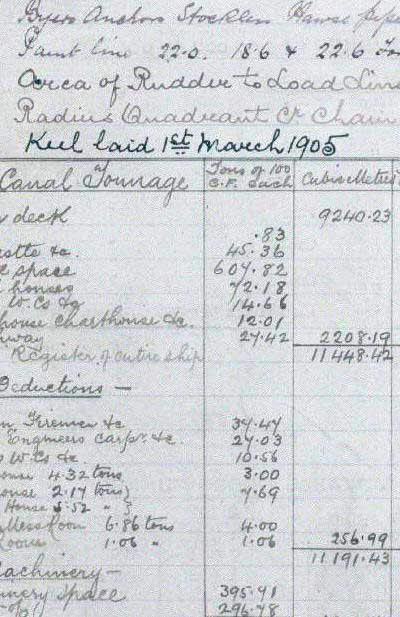 Byers Anchors Stockless Hawse pipe
Paint line 22.0. 18.6 & 22.6
Area of Rudder to Load Line
Radius Quadrant Cr Chain
Keel laid 1st March 1905
Canal Tonnage Tons of 100 C.F. each Cubic Metres
deck 9240.23
.83
&c. 45.36
space 607.82
houses 72.18
W.Cs &c 14.66
house charthouse &c. 12.01
way 27.42 2208.19
Register of entire ship 11448.42
Deductions —
Firemen &c 37.47
Engineers Carpr. &c. 27.03
W.Cs &c 10.56
4.32 tons 3.00
2.17 tons } 7.69
House 5.52 " }
Mess Room 6.86 tons 4.00
Room 1.06 " 1.06 256.99
11191.43
Machinery —
space 395.91
296.78